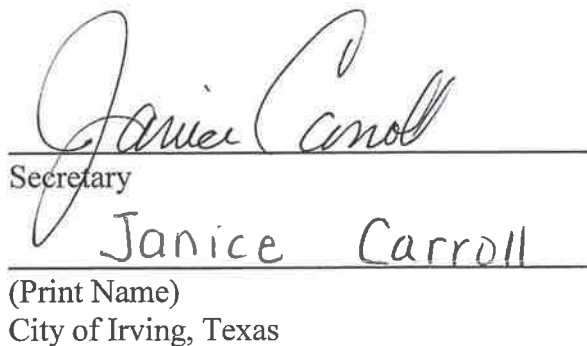 Janice Carroll
Secretary
Janice Carroll
(Print Name)
City of Irving, Texas